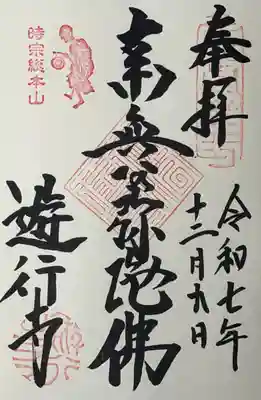 奉拝
令和七年
十二月九日
南無阿弥陀佛
時宗総本山
遊行寺